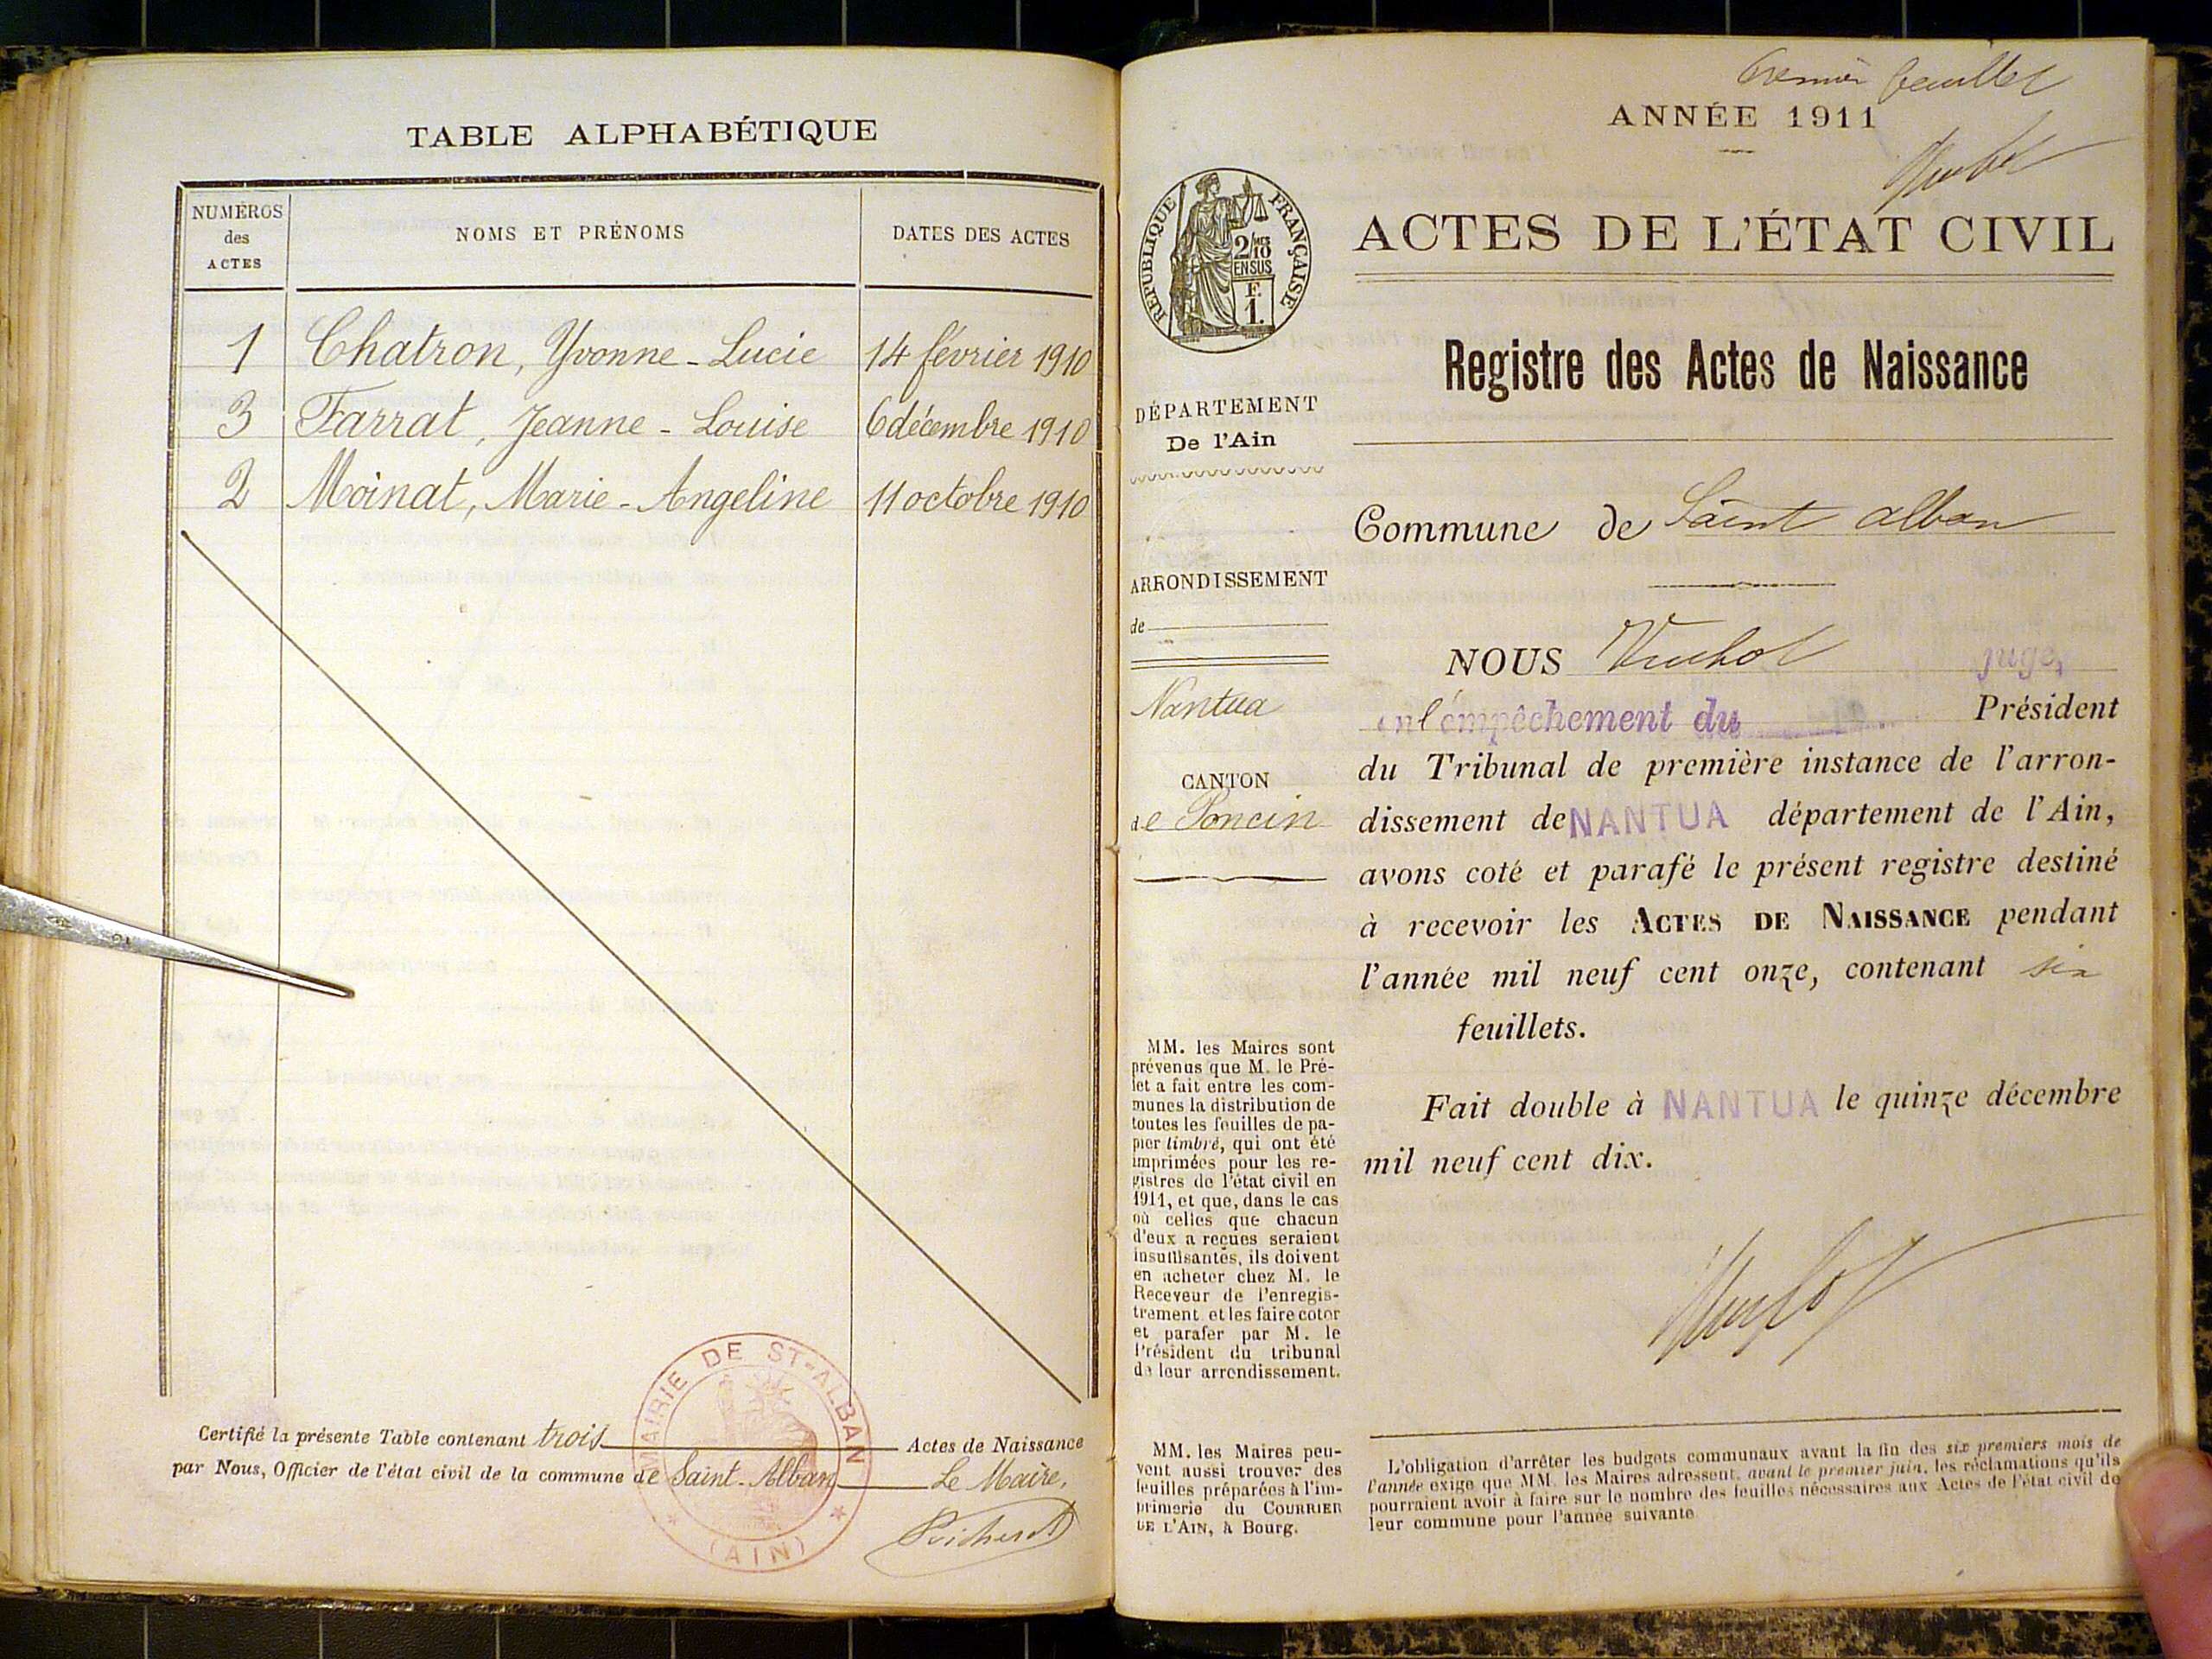 TABLE ALPHABÉTIQUE
NUMÉROS
des
ACTES
NOMS ET PRÉNOMS
DATES DES ACTES
1 Chatron, Yvonne-Lucie 14 février 1910
3 Farrat, Jeanne-Louise 6 décembre 1910
2 Moinat, Marie-Angeline 11 octobre 1910
Certifié la présente Table contenant trois Actes de Naissance
par Nous, Officier de l'état civil de la commune de Saint-Alban Le Maire,
MAIRIE DE ST-ALBAN
(AIN)
Premier feuillet
ANNÉE 1911
RÉPUBLIQUE FRANÇAISE
2/10
EN SUS
F.
1.
ACTES DE L'ÉTAT CIVIL
Registre des Actes de Naissance
DÉPARTEMENT
De l'Ain
ARRONDISSEMENT
de
Nantua
CANTON
de Poncin
MM. les Maires sont
prévenus que M. le Pré-
fet a fait entre les com-
munes la distribution de
toutes les feuilles de pa-
pier timbré, qui ont été
imprimées pour les re-
gistres de l'état civil en
1911, et que, dans le cas
où celles que chacun
d'eux a reçues seraient
insuffisantes, ils doivent
en acheter chez M. le
Receveur de l'enregis-
trement et les faire coter
et parafer par M. le
Président du tribunal
de leur arrondissement.
MM. les Maires peu-
vent aussi trouver des
feuilles préparées à l'im-
primerie du COURRIER
DE L'AIN, à Bourg.
Commune de Saint alban
NOUS juge,
en l'empêchement du Président
du Tribunal de première instance de l'arron-
dissement de NANTUA département de l'Ain,
avons coté et parafé le présent registre destiné
à recevoir les ACTES DE NAISSANCE pendant
l'année mil neuf cent onze, contenant six
feuillets.
Fait double à NANTUA le quinze décembre
mil neuf cent dix.
L'obligation d'arrêter les budgets communaux avant la fin des six premiers mois de
l'année exige que MM. les Maires adressent, avant le premier juin, les réclamations qu'ils
pourraient avoir à faire sur le nombre des feuilles nécessaires aux Actes de l'état civil de
leur commune pour l'année suivante